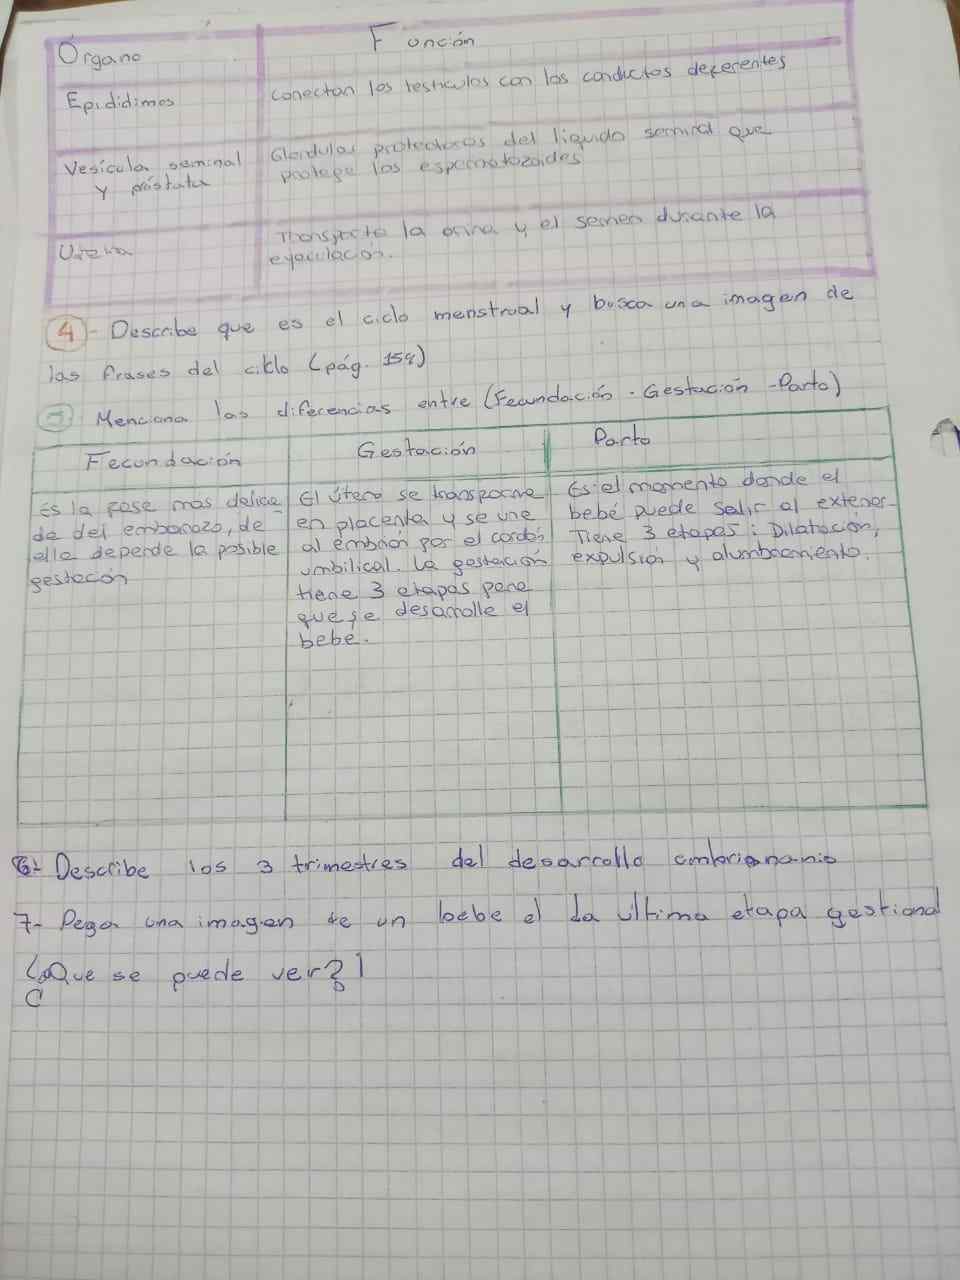 Órgano
Función
Epididimos
conectan los testiculos con los conductos deferentes
Vesícula seminal
y próstata
Glandulas protectoras del líquido seminal que
protege los espermatozoides
Uretra
Transporta la orina y el semen durante la
eyaculación.
4 - Describe que es el ciclo menstrual y busca una imagen de
las frases del ciclo (pág. 158)
5 Menciona las diferencias entre (Fecundación - Gestación - Parto)
Fecundación
Gestación
Parto
Es la fase mas delica
da del embarazo, de
ella depende la posible
gestación
El útero se transforma
en placenta y se une
al embrión por el cordón
umbilical. La gestación
tiene 3 etapas para
que se desarrolle el
bebe.
Es el momento donde el
bebé puede salir al exterior.
Tiene 3 etapas: Dilatación,
expulsión y alumbramiento.
6- Describe los 3 trimestres del desarrollo
7- Pega una imagen de un bebe el la última etapa gestional
Que se puede ver?